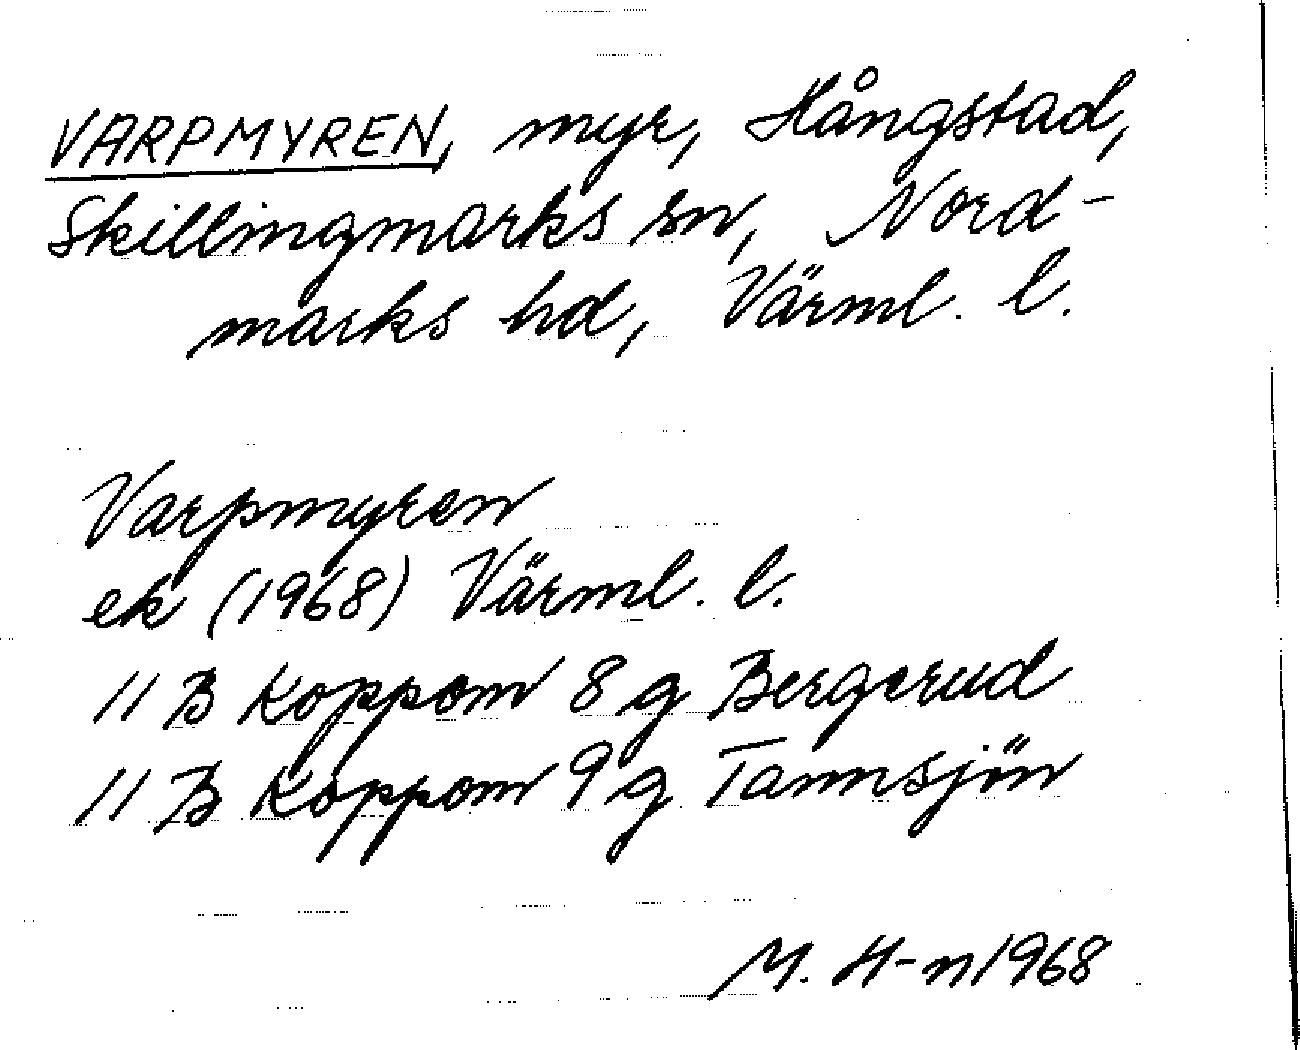 VARPMYREN, myr, Hångstad,
Skillingmarks sn, Nord-
marks hd, Värml. l.
Varpmyren
ek (1968) Värml. l.
11 B Koppom 8 g Bergerud
11 B Koppom 9 g Tannsjön
M. H-n 1968